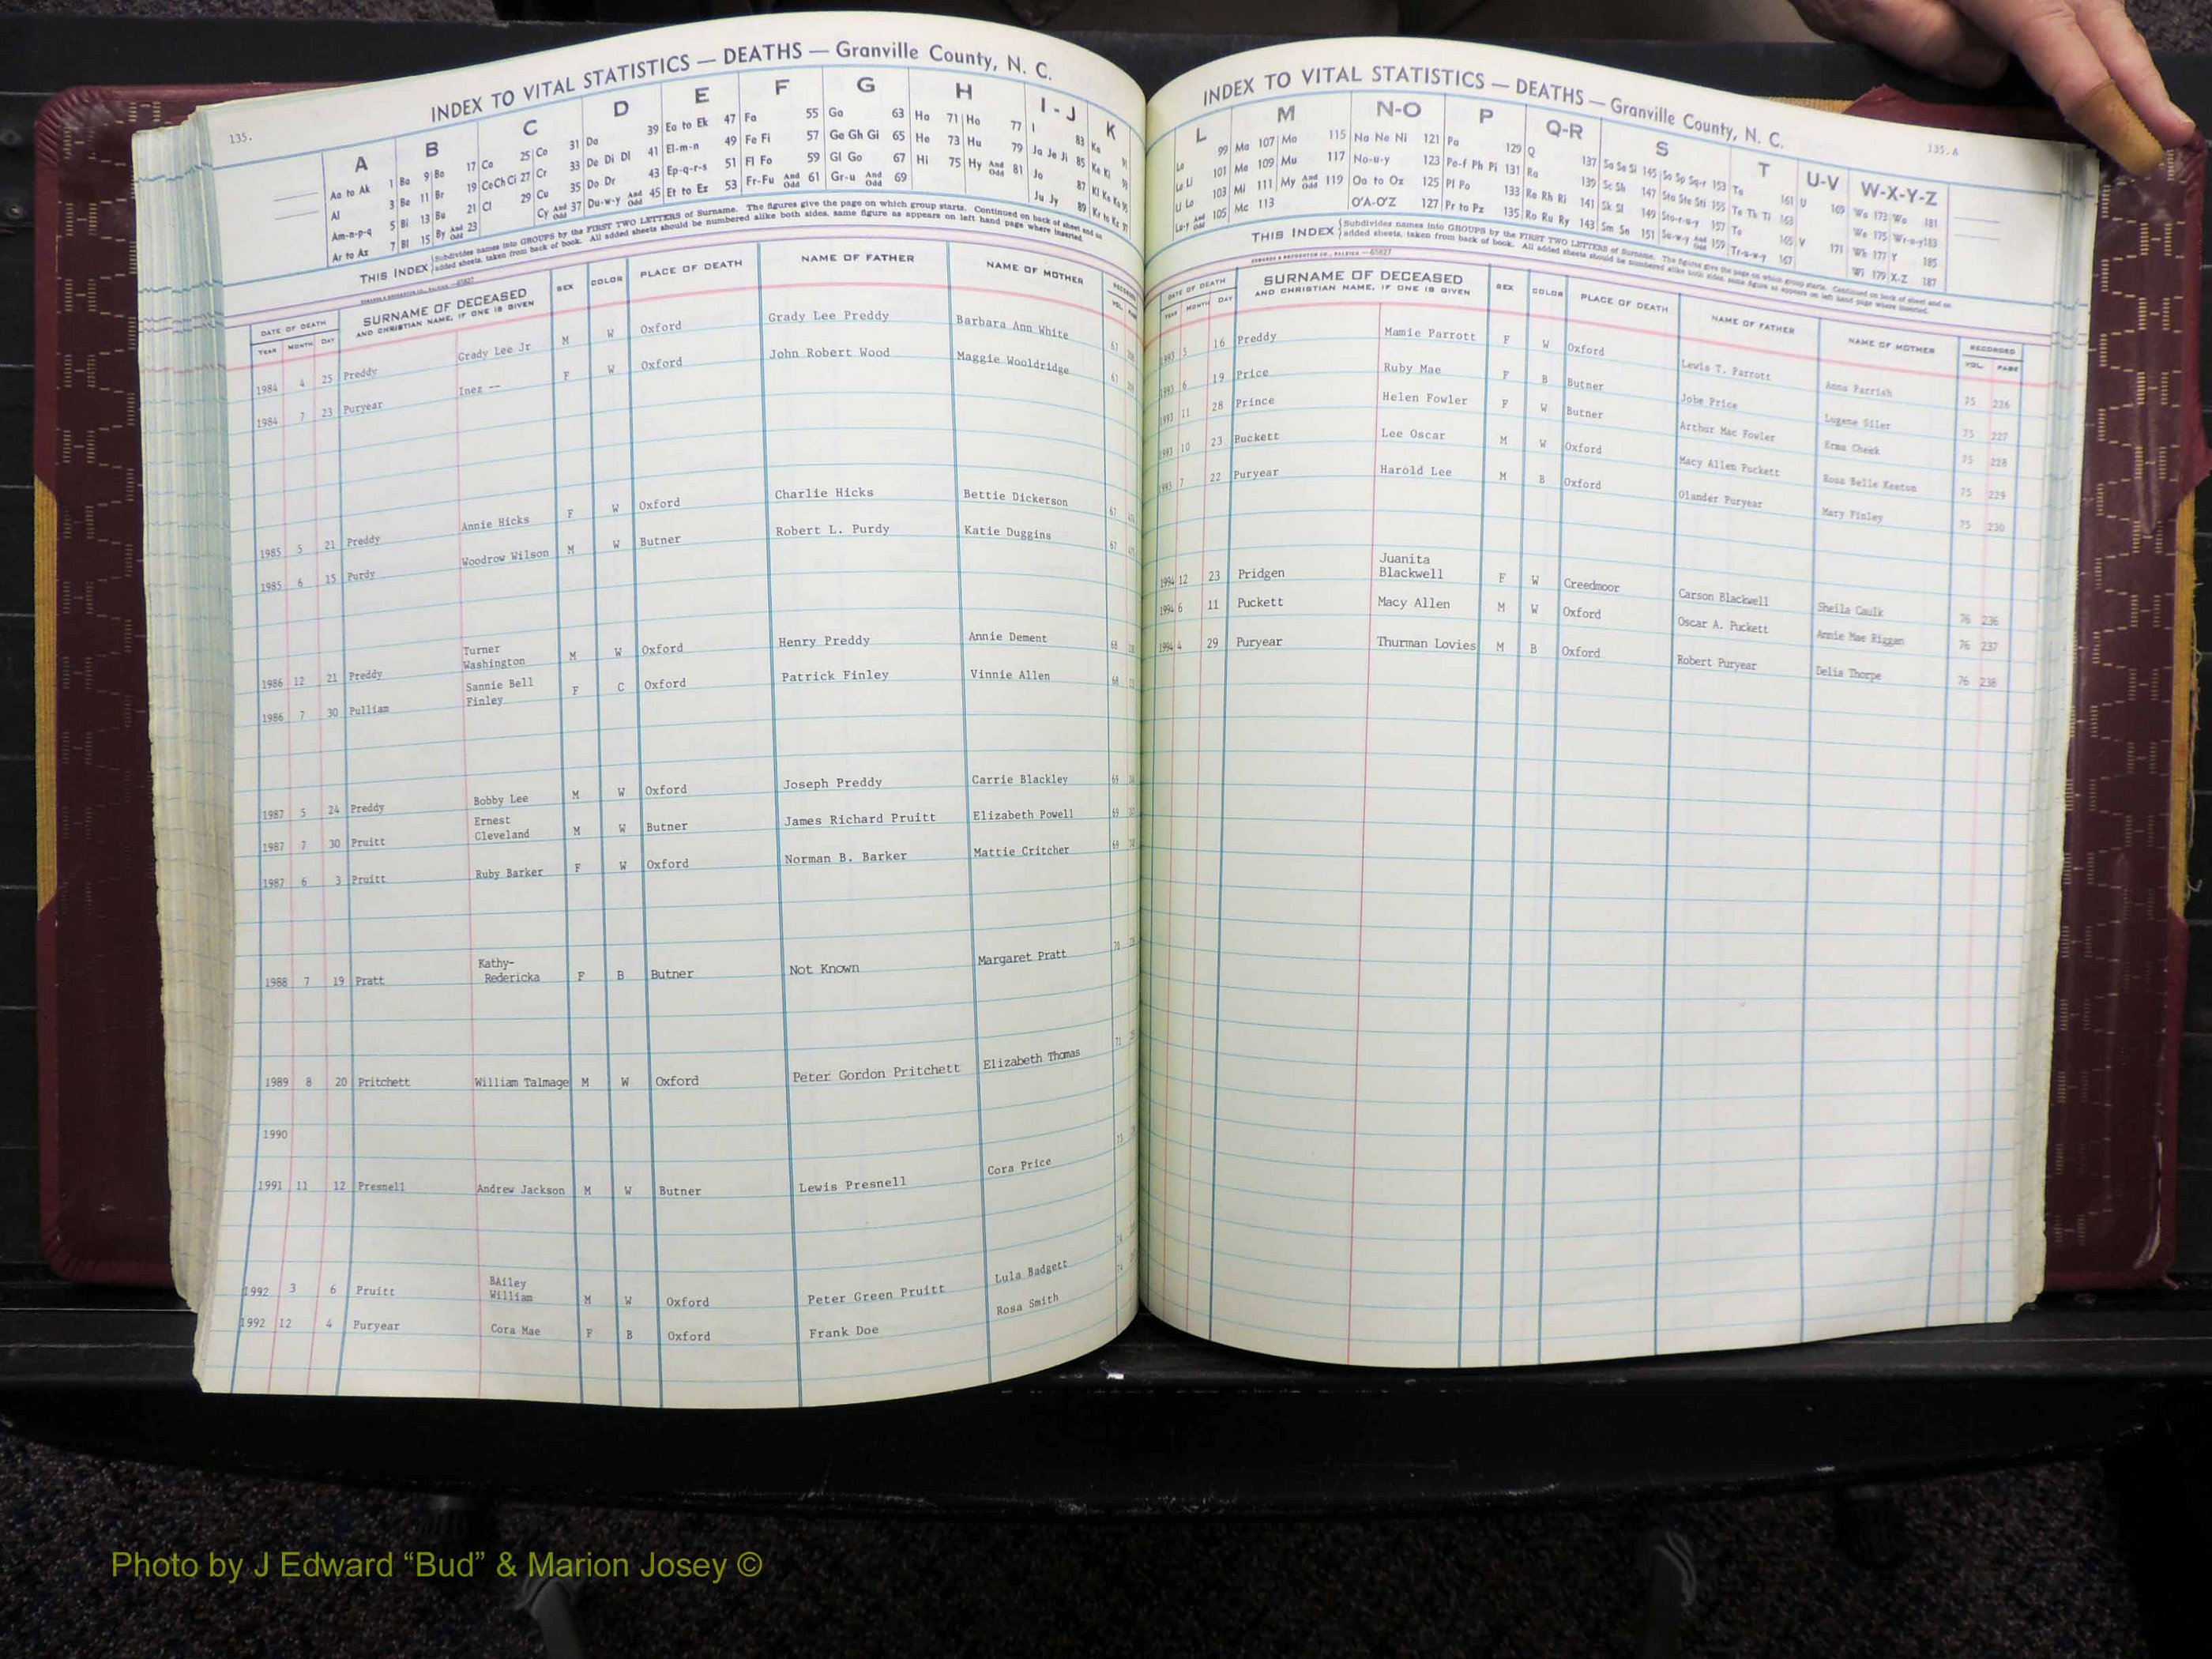 135.
INDEX TO VITAL STATISTICS — DEATHS — Granville County, N. C.
A B C D E F G H I - J K
Aa to Ak 1 Ba 9 Bo 17 Ca 25 Co 31 Da 39 Ea to Ek 47 Fa 55 Ga 63 Ha 71 Ho 77 I 83 Ka
Al 3 Be 11 Br 19 Ce Ch Ci 27 Cr 33 De Di Dl 41 El-m-n 49 Fe Fi 57 Ge Gh Gi 65 He 73 Hu 79 Ja Je Ji 85 Ke Ki
Am-n-p-q 5 Bi 13 Bu 21 Cl 29 Cu 35 Do Dr 43 Ep-q-r-s 51 Fl Fo 59 Gl Go 67 Hi 75 Hy And Odd 81 Jo 87
Ar to Az 7 Bl 15 By And Odd 23 Cy And Odd 37 Du-w-y And Odd 45 Et to Ez 53 Fr-Fu And Odd 61 Gr-u And Odd 69 Ju Jy 89 Kr to Kz 97
THIS INDEX Subdivides names into GROUPS by the FIRST TWO LETTERS of Surname. The figures give the page on which group starts. Continued on back of sheet and on
added sheets, taken from back of book. All added sheets should be numbered alike both sides, same figure as appears on left hand page where inserted.
DATE OF DEATH SURNAME OF DECEASED SEX COLOR PLACE OF DEATH NAME OF FATHER NAME OF MOTHER RECORDED
YEAR MONTH DAY AND CHRISTIAN NAME, IF ONE IS GIVEN VOL.
1984 4 25 Preddy Grady Lee Jr M W Oxford Grady Lee Preddy Barbara Ann White 67
1984 7 23 Puryear Inez -- F W Oxford John Robert Wood Maggie Wooldridge 67
1985 5 21 Preddy Annie Hicks F W Oxford Charlie Hicks Bettie Dickerson 67
1985 6 15 Purdy Woodrow Wilson M W Butner Robert L. Purdy Katie Duggins 67
1986 12 21 Preddy Turner Washington M W Oxford Henry Preddy Annie Dement 68
1986 7 30 Pulliam Sannie Bell Finley F C Oxford Patrick Finley Vinnie Allen 68
1987 5 24 Preddy Bobby Lee M W Oxford Joseph Preddy Carrie Blackley 69
1987 7 30 Pruitt Ernest Cleveland M W Butner James Richard Pruitt Elizabeth Powell 69
1987 6 3 Pruitt Ruby Barker F W Oxford Norman B. Barker Mattie Critcher 69
1988 7 19 Pratt Kathy- Redericka F B Butner Not Known Margaret Pratt 70
1989 8 20 Pritchett William Talmage M W Oxford Peter Gordon Pritchett Elizabeth Thomas 71
1990
1991 11 12 Presnell Andrew Jackson M W Butner Lewis Presnell Cora Price
1992 3 6 Pruitt BAiley William M W Oxford Peter Green Pruitt Lula Badgett
1992 12 4 Puryear Cora Mae F B Oxford Frank Doe Rosa Smith
INDEX TO VITAL STATISTICS — DEATHS — Granville County, N. C.
135.A
L M N-O P Q-R S T U-V W-X-Y-Z
La 99 Ma 107 Mo 115 Na Ne Ni 121 Pa 129 Q 137 Sa Se Si 145 So Sp Sq-r 153 Ta 161 U 169 Wa 173 Wo 181
Le Li 101 Me 109 Mu 117 No-u-y 123 Pe-f Ph Pi 131 Ra 139 Sc Sh 147 Sta Ste Sti 155 Te Th Ti 163 We 175 Wr-u-y 183
Ll Lo 103 Mi 111 My And Odd 119 Oa to Oz 125 Pl Po 133 Re Rh Ri 141 Sk Sl 149 Sto-r-u-y 157 To 165 V 171 Wh 177 Y 185
Lu-y And Odd 105 Mc 113 O'A-O'Z 127 Pr to Pz 135 Ro Ru Ry 143 Sm Sn 151 Su-w-y And Odd 159 Tr-u-w-y 167 Wi 179 X-Z 187
THIS INDEX Subdivides names into GROUPS by the FIRST TWO LETTERS of Surname. The figures give the page on which group starts. Continued on back of sheet and on
added sheets, taken from back of book. All added sheets should be numbered alike both sides, same figure as appears on left hand page where inserted.
DATE OF DEATH SURNAME OF DECEASED SEX COLOR PLACE OF DEATH NAME OF FATHER NAME OF MOTHER RECORDED
YEAR MONTH DAY AND CHRISTIAN NAME, IF ONE IS GIVEN VOL. PAGE
1993 5 16 Preddy Mamie Parrott F W Oxford Lewis T. Parrott Anna Parrish 75 226
1993 6 19 Price Ruby Mae F B Butner Jobe Price Lugene Siler 75 227
1993 11 28 Prince Helen Fowler F W Butner Arthur Mac Fowler Erma Cheek 75 228
1993 10 23 Puckett Lee Oscar M W Oxford Macy Allen Puckett Rosa Belle Keaton 75 229
1993 7 22 Puryear Harold Lee M B Oxford Olander Puryear Mary Finley 75 230
1994 12 23 Pridgen Juanita Blackwell F W Creedmoor Carson Blackwell Sheila Caulk 76 236
1994 6 11 Puckett Macy Allen M W Oxford Oscar A. Puckett Annie Mae Riggan 76 237
1994 4 29 Puryear Thurman Lovies M B Oxford Robert Puryear Delia Thorpe 76 238
Photo by J Edward “Bud” & Marion Josey ©